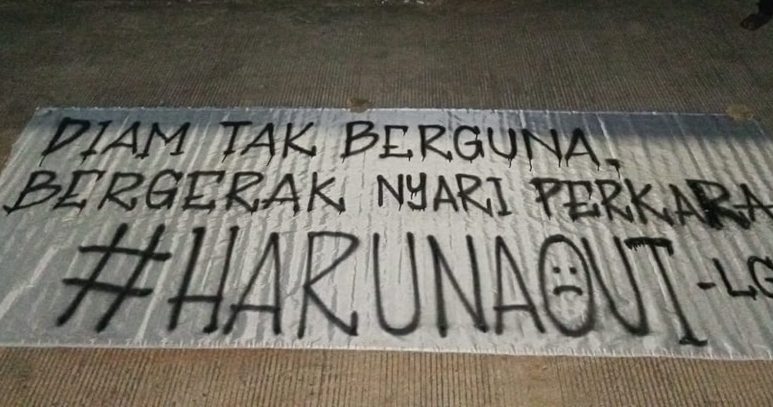 DIAM TAK BERGUNA,
BERGERAK NYARI PERKARA
#HARUNAOUT -LG